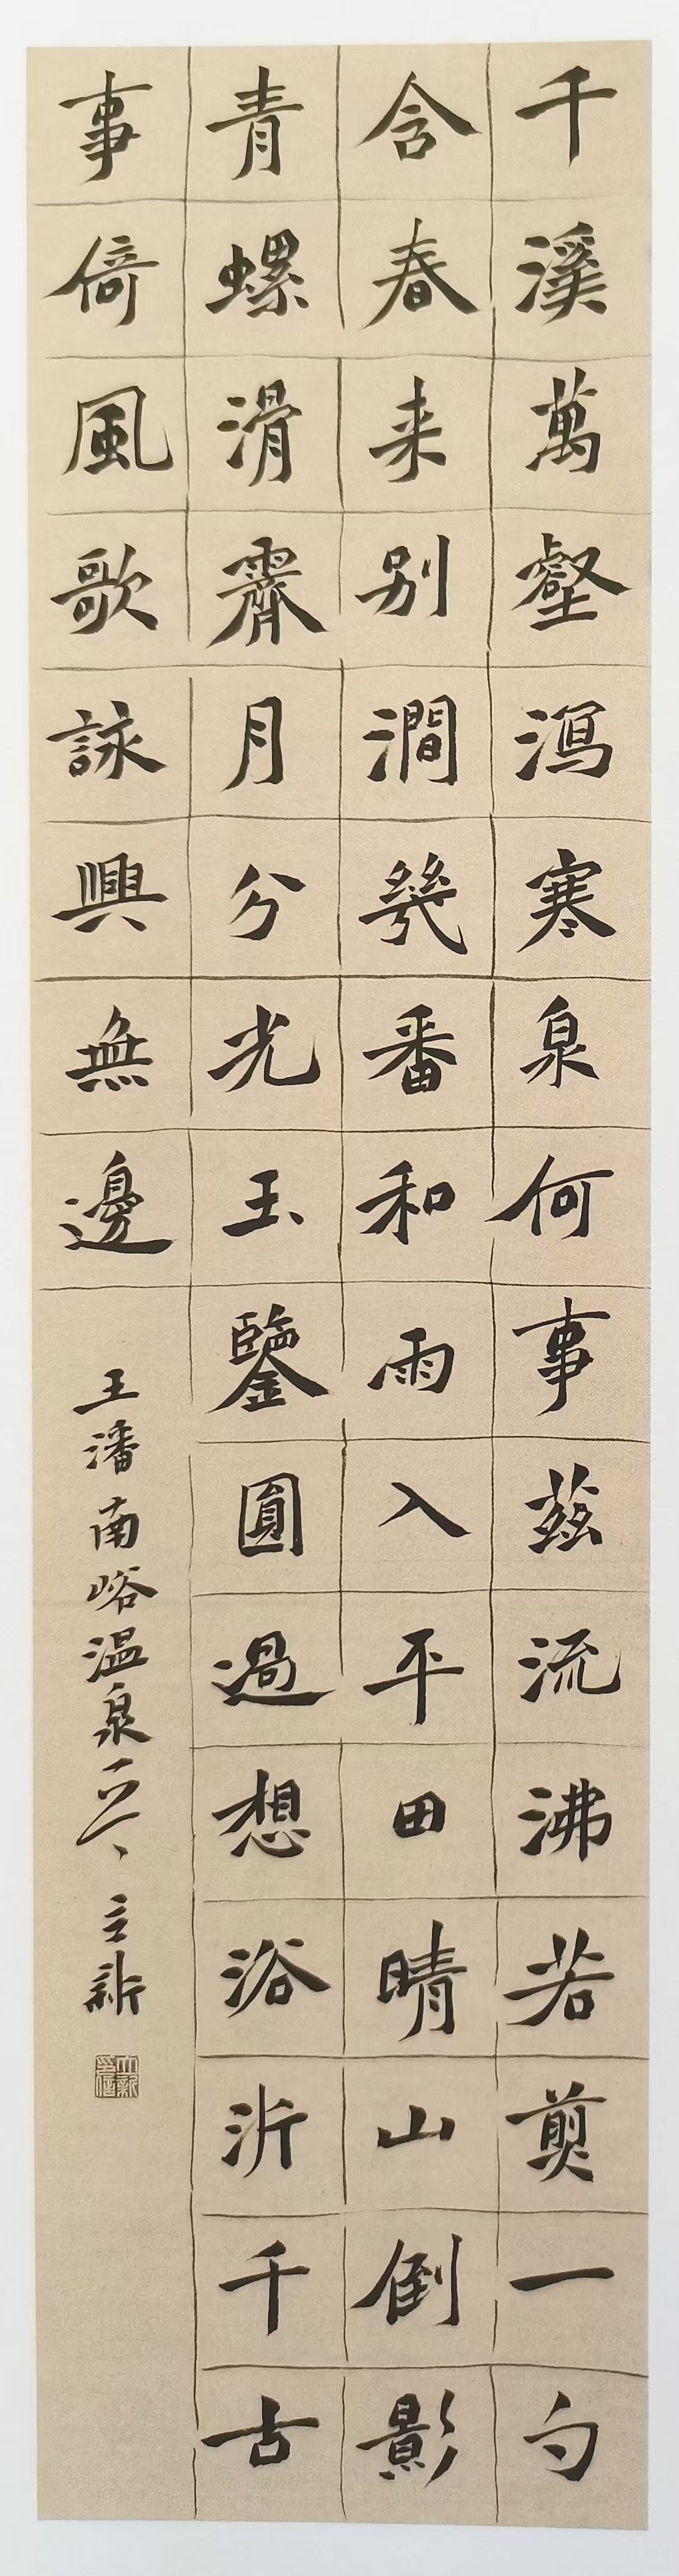 千溪萬壑瀉寒泉何事茲流沸若煎一勺
含春来别澗幾番和雨入平田晴山倒影
青螺滑霽月分光玉鑒圓過想浴沂千古
事倚風歌詠興無邊
王潘南峪温泉一首立新